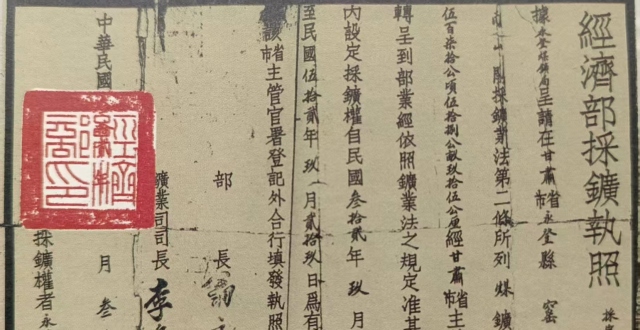 經濟部採鑛執照
據永登煤鑛局呈請在甘肅省市永登縣窰
採鑛業法第二條所列煤鑛
伍百柒拾公頃伍拾捌公畝玖拾伍公厘經甘肅省市主
轉呈到部業經依照鑛業法之規定准其
內設定採鑛權自民國叁拾貳年玖月
至民國伍拾貳年玖月貳拾玖日為有
該省市主管官署登記外合行填發執照
部長
鑛業司司長李
中華民國年月叁
採鑛權者永